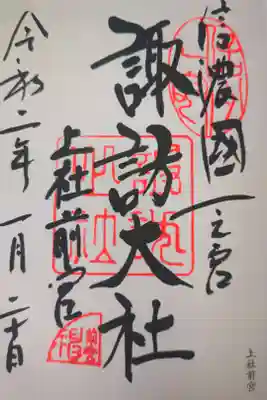 信濃國一之宮
諏訪大社
上社前宮
令和二年一月二十日
上社前宮